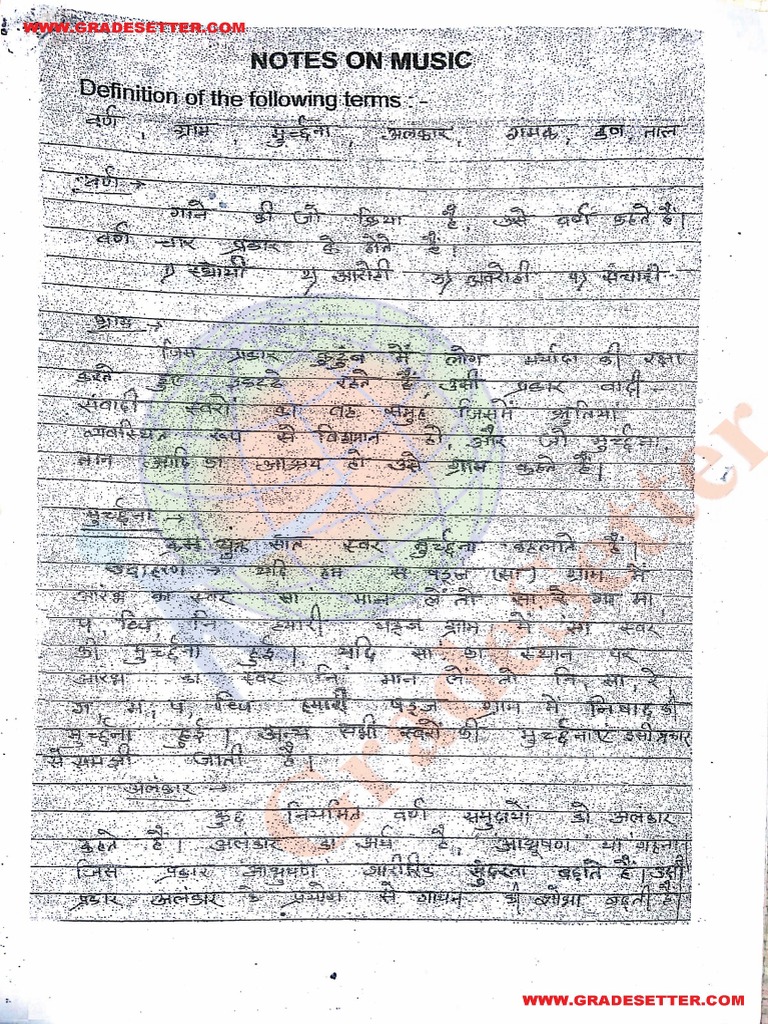 WWW.GRADESETTER.COM
NOTES ON MUSIC
Definition of the following terms : -
वर्ण , ग्राम , मुर्च्छना , अलंकार , गमक , कण , ताल
वर्ण →
गाने की जो क्रिया है, उसे वर्ण कहते हैं।
वर्ण चार प्रकार के होते हैं।
१) स्थायी २) आरोही ३) अवरोही ४) संचारी
ग्राम →
जिस प्रकार कुटुंब में लोग मर्यादा की रक्षा
करते हुए इकट्टे रहते हैं, उसी प्रकार वादी
संवादी स्वरों का वह समुह जिसमें श्रुतियां
व्यवस्थित रूप से विद्यमान हो, और जो मुर्च्छना,
तान आदि का आश्रय हो उसे ग्राम कहते हैं।
मुर्च्छना →
क्रम युक्त सात स्वर मुर्च्छना कहलाते हैं।
उदाहरण → यदि हम षड्ज (सा) ग्राम में
आरंभ का स्वर सा मान लें तो सा रे गा मा
प, नि हमारी षड्ज ग्राम में सा स्वर
की मुर्च्छना हुई। यदि सा का स्थान पर
आरंभ का स्वर नि मान लें तो नि, सा, रे,
ग, म, प, हमारी षड्ज ग्राम में निषाद की
मुर्च्छना हुई। अन्य सभी स्वरों की मुर्च्छनाएं इसी प्रकार
से समझी जाती है।
अलंकार →
कुछ नियमित वर्ण समुदायों को अलंकार
कहते हैं। अलंकार का अर्थ है, आभुषण या गहना।
जिस प्रकार आभुषण शारीरिक सुंदरता बढ़ाते हैं। उसी
प्रकार अलंकार के प्रयोग से गायन की शोभा बढ़ती है।
GradeSetter
WWW.GRADESETTER.COM